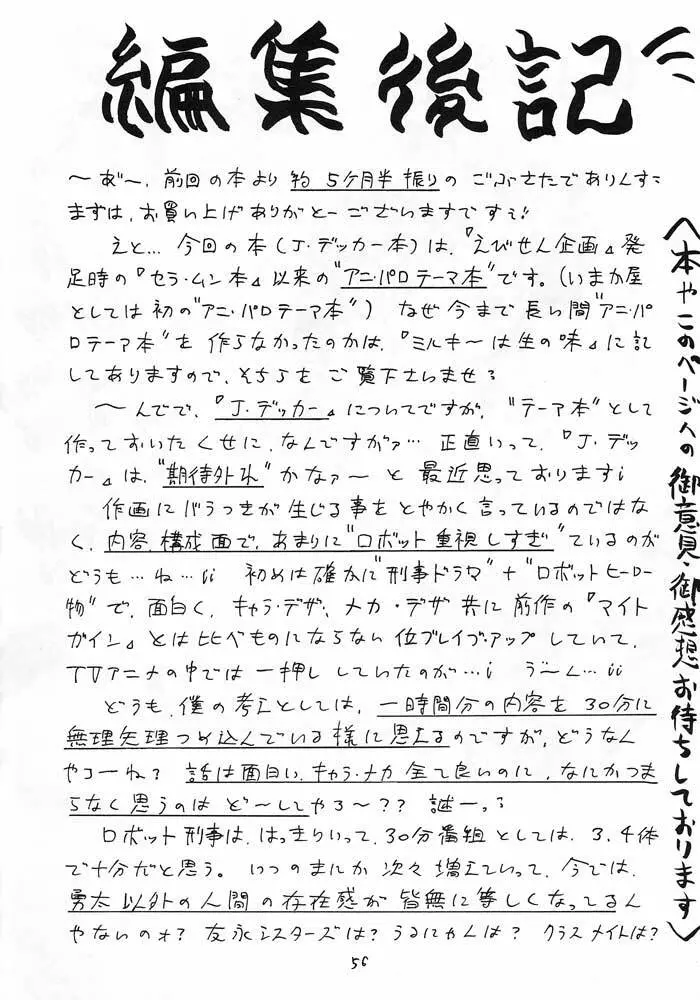 編集後記
〜あ゛〜、前回の本より 約 5ヶ月半振りの ごぶさたでありんす
まずは、お買い上げありがとーございますですぅ
えと… 今回の本(J・デッカー本)は、『えびせん企画』発
足時の『セラ・ムン本』以来の"アニ・パロテーマ本"です。(いまか屋
としては初の"アニ・パロテーマ本") なぜ今まで長い間"アニ・パ
ロテーマ本"を作らなかったのかは、『ミルキ〜は生の味』に記
してありますので、そちらをご覧下さいませ
〜んでで、『J・デッカー』についてですが、"テーマ本"として
作っておいたくせに、なんですがァ… 正直いって、『J・デッ
カー』は、"期待外れ"かなァ〜と最近思っております
作画にバラつきが生じる事をとやかく言っているのではな
く、内容、構成面で、あまりに"ロボット重視しすぎ"ているのが
どうも…ね… 初めは確かに"刑事ドラマ"+"ロボットヒーロー
物"で、面白く、キャラ・デザ、メカ・デザ共に前作の『マイト
ガイン』とは比べものにならない位ブレイブ・アップしていて、
TVアニメの中では一押ししていたのが… う゛〜ん…
どうも、僕の考えとしては、一時間分の内容を30分に
無理矢理つめ込んでいる様に思えるのですが、どうなん
やろーね? 話は面白い、キャラ・メカ全て良いのに、なにかつま
らなく思うのはど〜してやろ〜?? 謎ーっ
ロボット刑事は、はっきりいって、30分番組としては、3、4体
で十分だと思う。いつのまにか次々増えていって、今では、
勇太以外の人間の存在感が皆無に等しくなってるん
やないのォ? 友永シスターズは? うるにゃんは? クラスメイトは?
〈本やこのページへの御意見、御感想お待ちしております〉
56